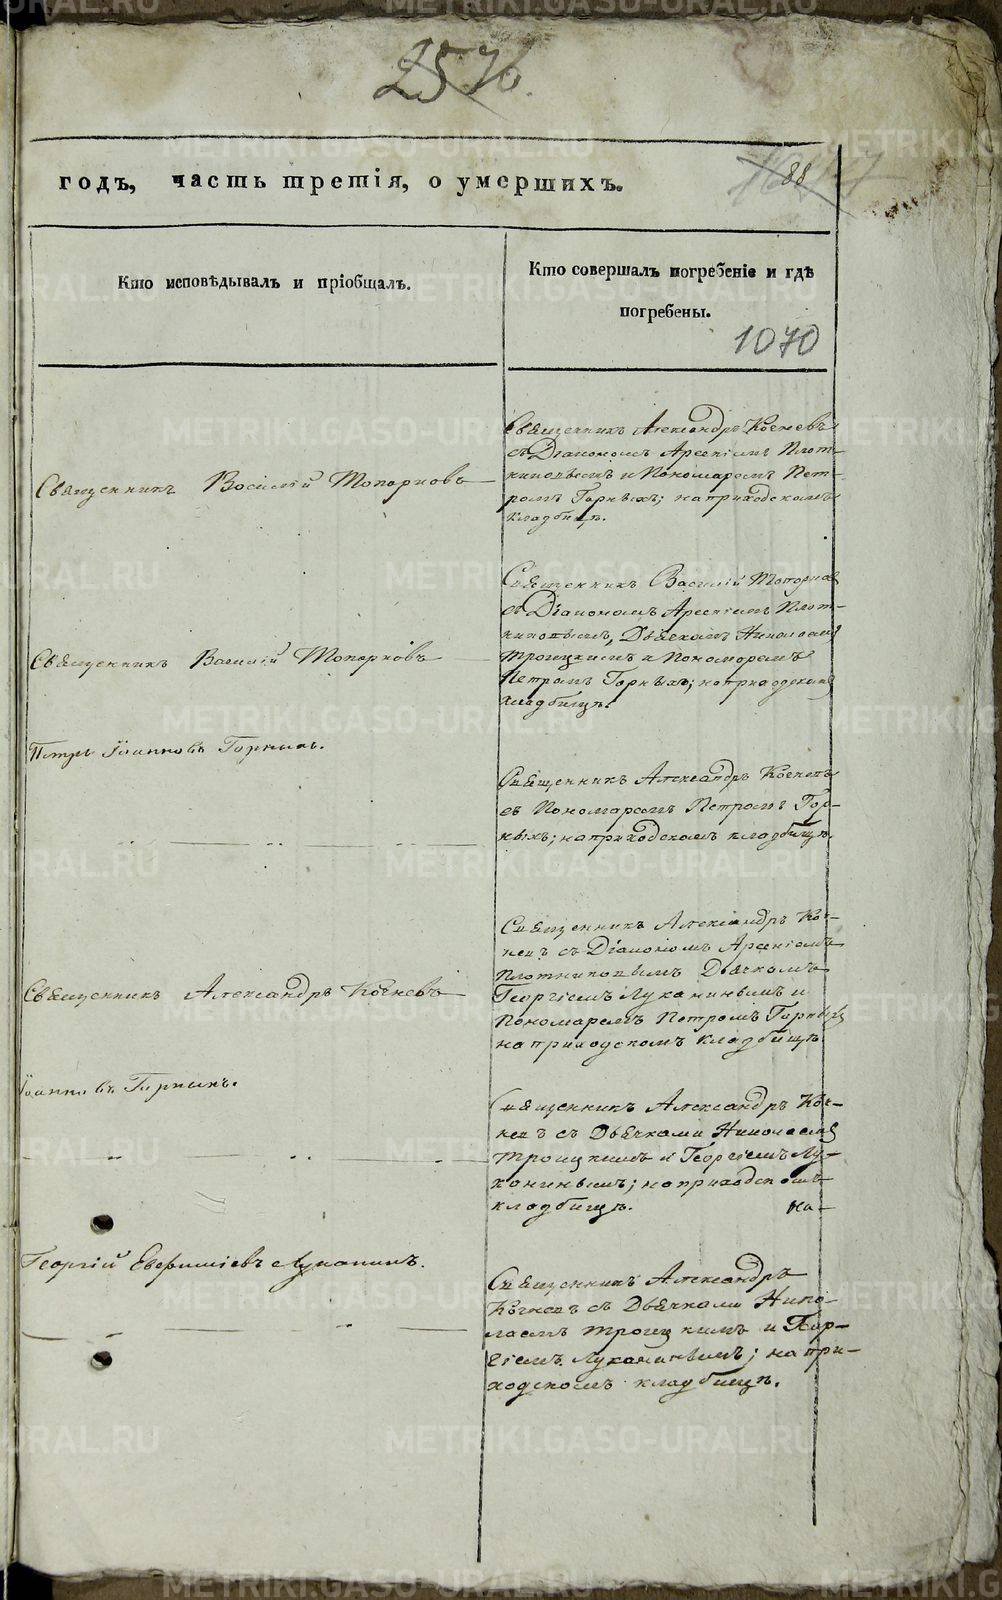 2576.
88
годъ, часть третія, о умершихъ.
Кто исповѣдывалъ и пріобщалъ.
Кто совершалъ погребеніе и гдѣ
погребены.
1070
Священникъ Василій Топорковъ
Священникъ Александръ Кочневъ
съ Діакономъ Арсеніемъ Плот-
никовымъ и Пономаремъ Пет-
ромъ Горныхъ; на приходскомъ
кладбищѣ.
Священникъ Василій Топорковъ
Священникъ Василій Топорков
съ Діакономъ Арсеніемъ Плот-
никовымъ, Дьячкомъ Николаемъ
Троицкимъ и Пономаремъ
Петромъ Горныхъ; на приходскомъ
кладбищѣ.
Петръ Іоанновъ Горныхъ.
Священникъ Александръ Кочневъ
съ Пономаремъ Петромъ Гор-
ныхъ; на приходскомъ кладбищѣ.
Священникъ Александръ Кочневъ
Священникъ Александръ Коч-
невъ съ Діакономъ Арсеніемъ
Плотниковымъ Дьячкомъ
Георгіемъ Луканинымъ и
Пономаремъ Петромъ Горныхъ
на приходскомъ кладбищѣ.
Іоанновъ Горныхъ.
Священникъ Александръ Коч-
невъ съ Дьячками Николаемъ
Троицкимъ и Георгіемъ Лу-
канинымъ; на приходскомъ
кладбищѣ. на-
Георгій Евфиміевъ Луканинъ.
Священникъ Александръ
Кочневъ съ Дьячками Нико-
лаемъ Троицкимъ и Геор-
гіемъ Луканинымъ; на при-
ходскомъ кладбищѣ.
METRIKI.GASO-URAL.RU